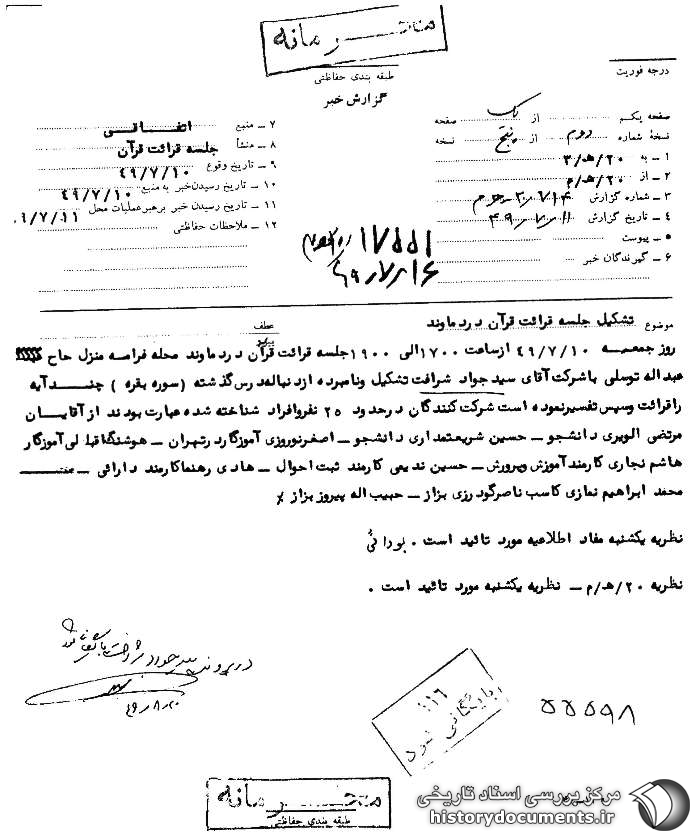 محرمانه
طبقه بندی حفاظتی
گزارش خبر
درجه فوریت
صفحه یکم از یک صفحه
نسخهٔ شماره دوم از پنج نسخه
۱ ـ به ۲۰/ه‍/۳
۲ ـ از ۲۰/ه‍/م
۳ ـ شماره گزارش
۴ ـ تاریخ گزارش ۴۹/۷/۱۱
۵ ـ پیوست
۶ ـ گیرندگان خبر
۷ ـ منبع اتفاقی
۸ ـ منشأ جلسه قرائت قرآن
۹ ـ تاریخ وقوع ۴۹/۷/۱۰
۱۰ ـ تاریخ رسیدن خبر به منبع ۴۹/۷/۱۰
۱۱ ـ تاریخ رسیدن خبر برهبر عملیات محل ۹/۷/۱۱
۱۲ ـ ملاحظات حفاظتی
۱۷۵۵۱
۴۹/۷/۱۶
موضوع تشکیل جلسه قرائت قرآن در دماوند
عطف
پیرو
روز جمعه ۴۹/۷/۱۰ از ساعت ۱۷۰۰ الی ۱۹۰۰ جلسه قرائت قرآن در دماوند محله فرامه منزل حاج
عبداله توسلی با شرکت آقای سید جواد شرافت تشکیل و نامبرده از دنباله درس گذشته (سوره بقره) چند آیه
را قرائت و سپس تفسیر نموده است شرکت کنندگان در حدود ۲۵ نفر و افراد شناخته شده عبارت بودند از آقایان
مرتضی الویری دانشجو ـ حسین شریعتمداری دانشجو ـ اصغر نوروزی آموزگار در تهران ـ هوشنگ اقبالی آموزگار
هاشم نجاری کارمند آموزش وپرورش ـ حسین ندیمی کارمند ثبت احوال ـ هادی رهنما کارمند دارائی ـ
محمد ابراهیم نمازی کاسب ناصر گودرزی بزاز ـ حبیب اله پیروز بزاز
نظریه یکشنبه مفاد اطلاعیه مورد تائید است . بودائی
نظریه ۲۰/ه‍/م ـ نظریه یکشنبه مورد تائید است .
در پرونده سید جواد شرافت بایگانی شود
۴۹/۸/۲۰
بایگانی شود
۱۱۶
۵۵۵۹۸
محرمانه
طبقه بندی حفاظتی
مرکز بررسی اسناد تاریخی
historydocuments.ir